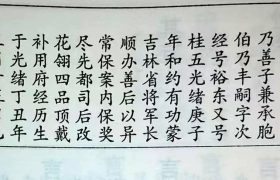 乃善子兼承胞
伯乃丰嗣字次
经号裕东又号
桂五光绪庚子
年和约有功蒙
吉林省将军长
顺办善后以异
常保案内保奖
尽先都司后改
花翎四品顶戴
补用府经历生
于光绪丁丑年